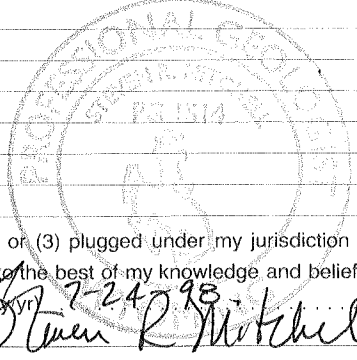 PROFESSIONAL GEOLOGIST
STEVEN R. MITCHELL
or (3) plugged under my jurisdiction
to the best of my knowledge and belief
/yr) 7-24-93
Steven R Mitchel